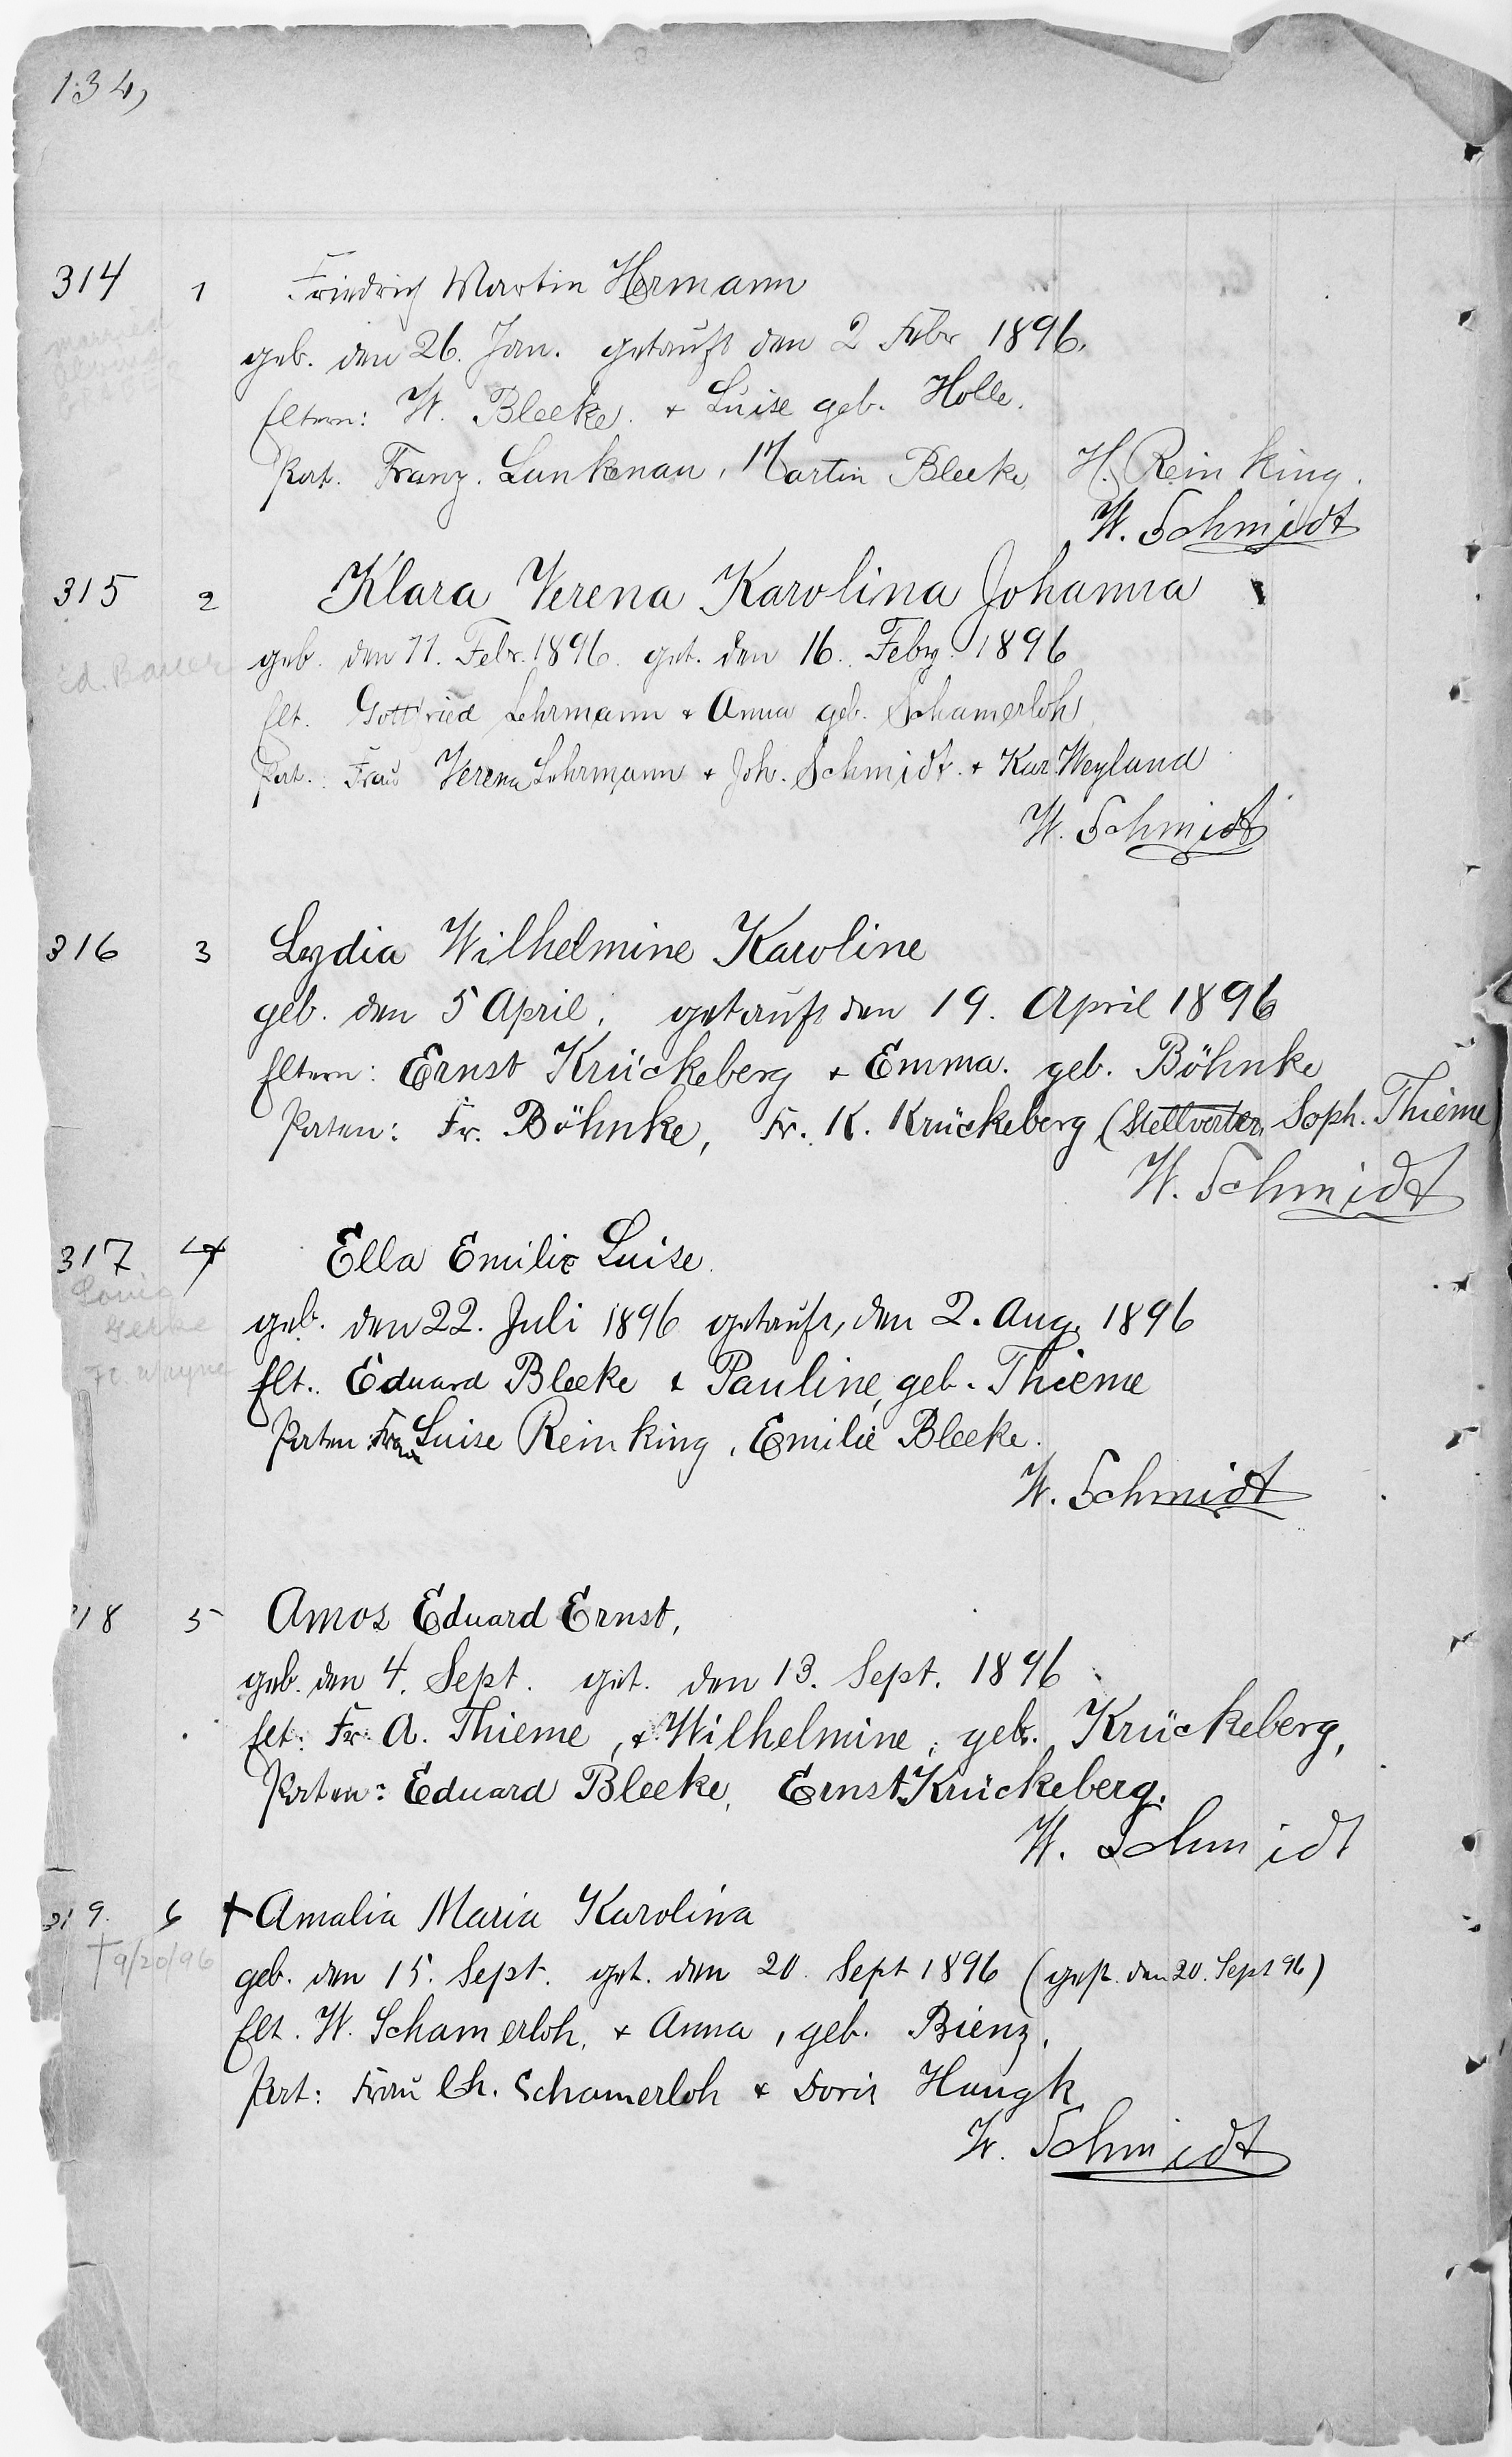 134,
314 1 Friedrich Martin Hermann
geb. den 26. Jan. getauft den 2 Febr 1896.
Eltern: W. Bleeke. + Luise geb. Holle.
Pat. Franz. Lankenau, Martin Bleeke, H. Reinking.
W. Schmidt
315 2 Klara Verena Karolina Johanna
Ed. Bauer
geb. den 11. Febr. 1896. get. den 16. Febr. 1896
Elt. Gottfried Lehrmann + Anna geb. Schamerloh
Pat.: Frau Verena Lehrmann + Joh. Schmidt. + Kar Weyland
W. Schmidt
316 3 Lydia Wilhelmine Karoline
geb. den 5 April, getauft den 19. April 1896
Eltern: Ernst Krückeberg + Emma. geb. Böhnke
Paten: Fr. Böhnke, Fr. K. Krückeberg (Stellvertr. Soph. Thieme
W. Schmidt
317 4 Ella Emilie Luise.
geb. den 22. Juli 1896 getauft, den 2. Aug. 1896
Ft. Wayne
Elt. Eduard Bleeke + Pauline, geb. Thieme
Paten: Frau Luise Reinking, Emilie Bleeke.
W. Schmidt
18 5 Amos Eduard Ernst,
geb. den 4. Sept. get. den 13. Sept. 1896
Elt: Fr. A. Thieme, + Wilhelmine, geb. Krückeberg,
Paten: Eduard Bleeke, Ernst Krückeberg.
W. Schmidt
319. 6 † Amalia Maria Karolina
†9/20/96
geb. den 15. Sept. get. den 20. Sept 1896 (gest. den 20. Sept 96)
Elt. W. Schamerloh, + Anna, geb. Bienz.
Pat: Frau Ch. Schamerloh + Doris Haugk
W. Schmidt